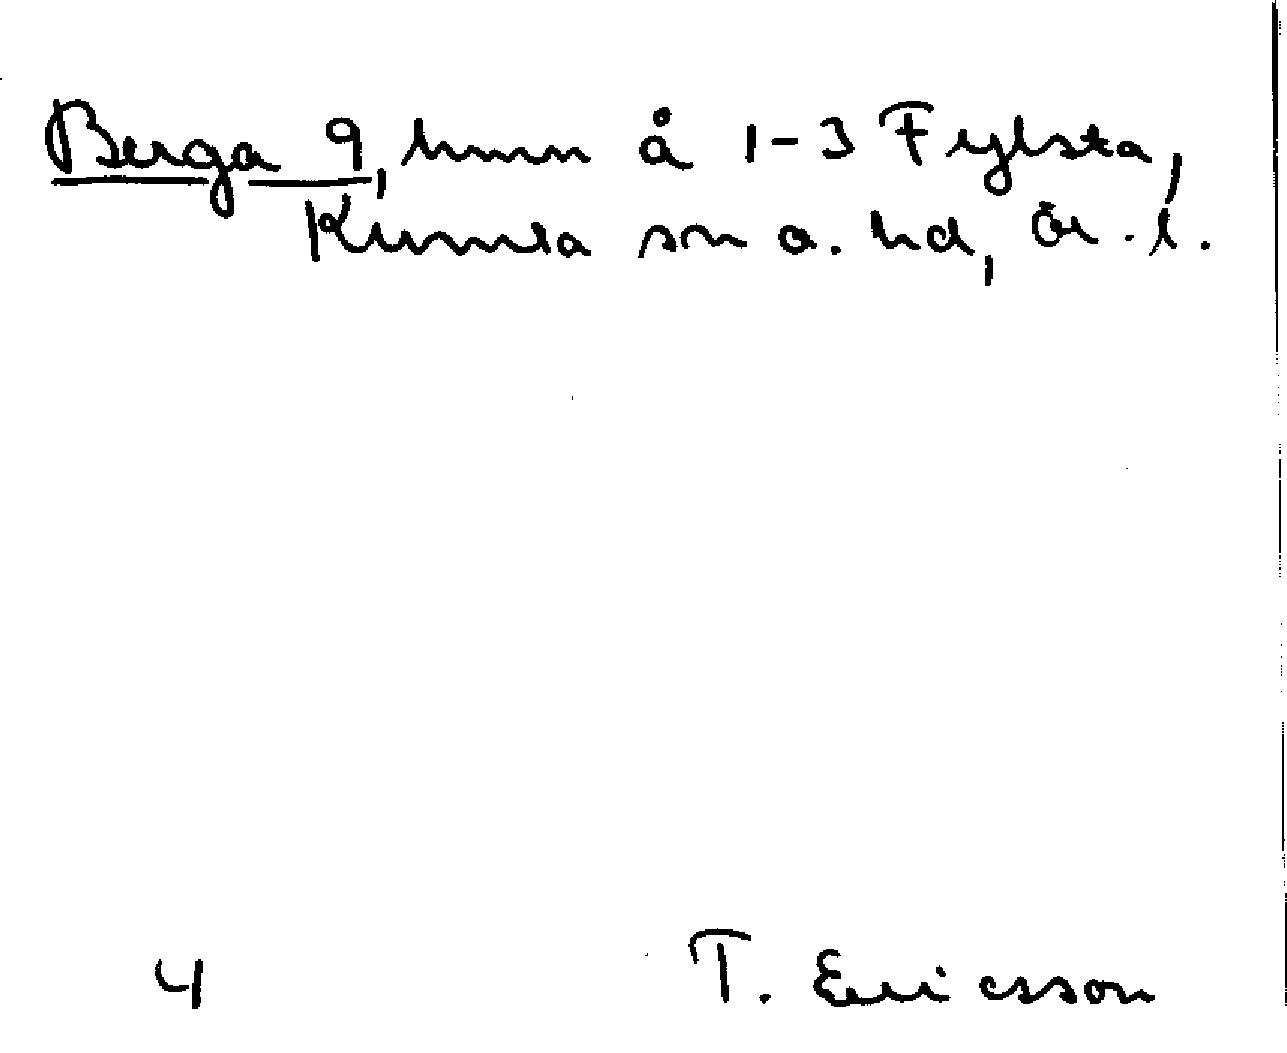 Berga 9, hmn å 1-3 Fylsta,
Kumla sn o. hd, Ör. l.
4 T. Ericsson